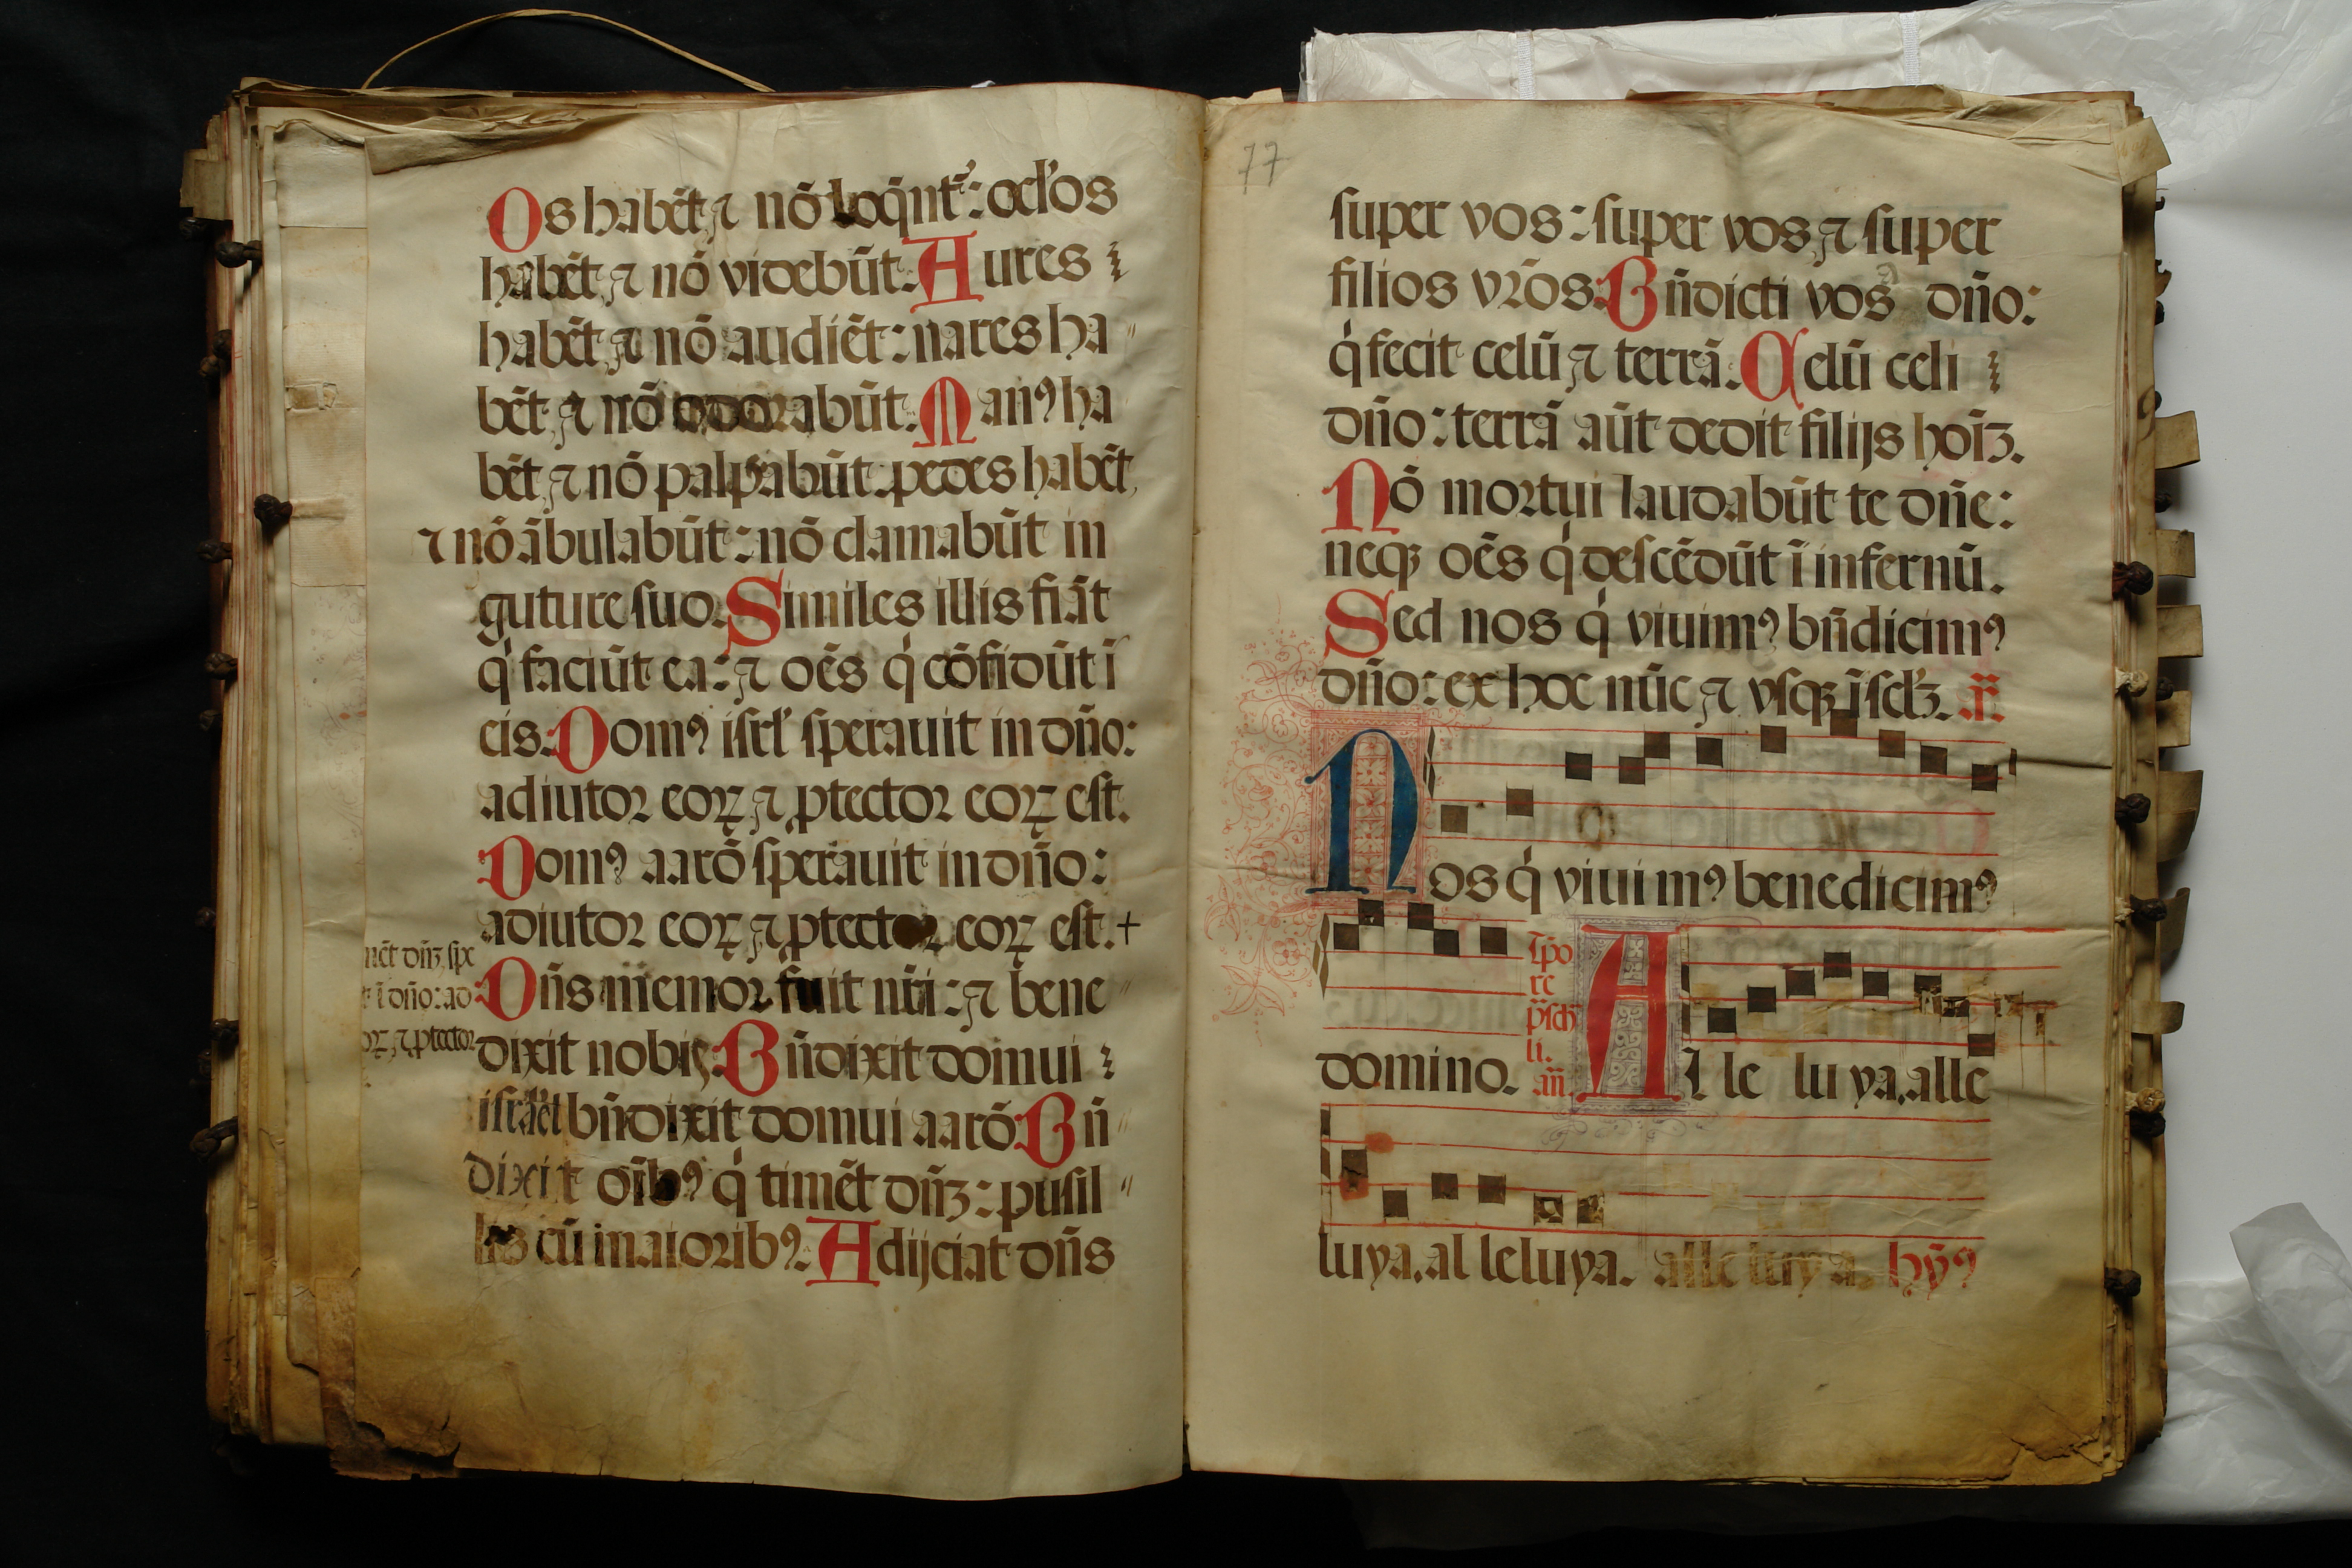 Os habēt ⁊ nō loq̄nt᷑: ocl'os
habēt ⁊ nō videbūt. Aures
habēt ⁊ nō audiēt: nares ha
bēt ⁊ nō odorabūt. Manꝰ ha
bēt ⁊ nō palpabūt. pedes habēt
⁊ nō ābulabūt: nō clamabūt in
guture suo. Similes illis fiāt
q' faciūt ea: ⁊ oēs q' cōfidūt ī
eis. Domꝰ isrl' sperauit in dn̄o:
adiutor eoꝝ ⁊ ꝓtector eoꝝ est.
Domꝰ aarō sperauit in dn̄o:
adiutor eoꝝ ⁊ ꝓtector eoꝝ est. +
mēt dn̄ꝫ spe
t ī dn̄o: ad
oꝝ ⁊ ꝓtector
Dn̄s memor fuit nr̄i: ⁊ bene
dixit nobis. Bn̄dixit domui
israel bn̄dixit domui aarō. Bn̄
dixit oīb' q' timēt dn̄ꝫ: pusil
lis cū maioribꝰ. Adijciat dn̄s
77
super vos: super vos ⁊ super
filios vr̄os. Bn̄dicti vos dn̄o:
q' fecit celū ⁊ terrā. Celū celi
dn̄o: terrā aūt dedit filijs hoīꝫ.
Nō mortui laudabūt te dn̄e:
neqꝫ oēs q' descēdūt ī infernū.
Sed nos q' viuimꝰ bn̄dicimꝰ
dn̄o: ex hoc nūc ⁊ vsqꝫ ī scl'ꝫ. añ.
Nos q' viui mꝰ benedicimꝰ
domino.
Tp̄o
re
p̄sch
li.
añ.
Al le lu ya. alle
luya. al leluya. alleluya. hȳꝰ